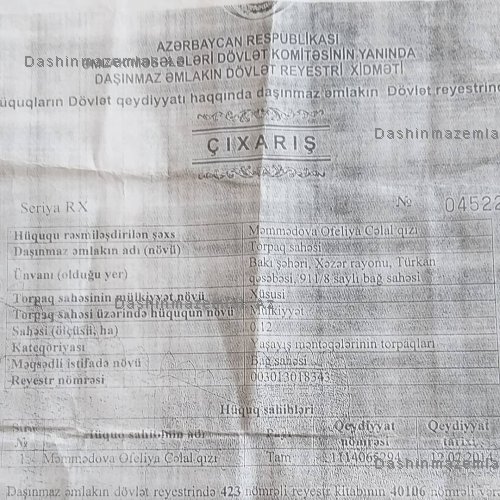 AZƏRBAYCAN RESPUBLİKASI
ƏMLAK MƏSƏLƏLƏRİ DÖVLƏT KOMİTƏSİNİN YANINDA
DAŞINMAZ ƏMLAKIN DÖVLƏT REYESTRİ XİDMƏTİ
Hüquqların Dövlət qeydiyyatı haqqında daşınmaz əmlakın Dövlət reyestrində
Dashinmazemla
ÇIXARIŞ
Seriya RX № 04522
Hüququ rəsmiləşdirilən şəxs Məmmədova Ofeliya Cəlal qızı
Daşınmaz əmlakın adı (növü) Torpaq sahəsi
Ünvanı (olduğu yer) Bakı şəhəri, Xəzər rayonu, Türkan
qəsəbəsi, 911/8 saylı bağ sahəsi
Torpaq sahəsinin mülkiyyət növü Xüsusi
Dashinmazemlak.Az
Torpaq sahəsi üzərində hüququn növü Mülkiyyət
Sahəsi (ölçüsü, ha) 0.12
Kateqoriyası Yaşayış məntəqələrinin torpaqları
Məqsədli istifadə növü Bağ sahəsi
Reyestr nömrəsi 003013018343
Hüquq sahibləri
Sıra № Hüquq sahibinin adı Payı Qeydiyyat nömrəsi Qeydiyyat tarixi
1. Məmmədova Ofeliya Cəlal qızı Tam 1114065294 12.02.2014
Dashinmazemla
Daşınmaz əmlakın dövlət reyestrində 423 nömrəli reyestr kitabının 40106 nömrəli